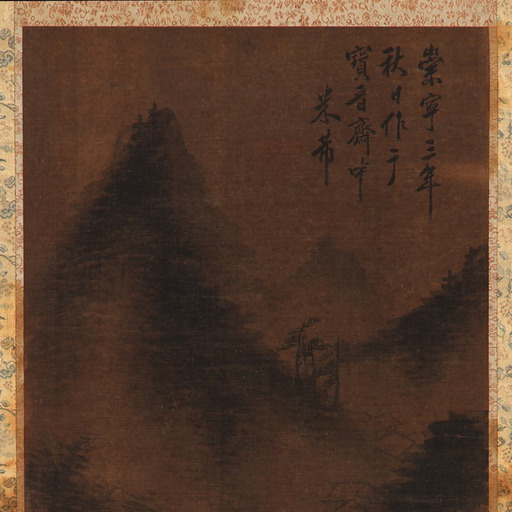 崇寧三年
秋日作于
寶晉齋中
米芾